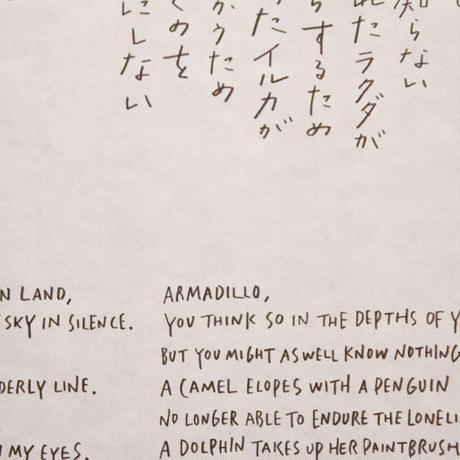 らない
たラクダが
らするため
たイルカが
うため
のを
にしない
N LAND,
SKY IN SILENCE.
DERLY LINE.
MY EYES.
ARMADILLO,
YOU THINK SO IN THE DEPTHS OF Y
BUT YOU MIGHT AS WELL KNOW NOTHING
A CAMEL ELOPES WITH A PENGUIN
NO LONGER ABLE TO ENDURE THE LONELI
A DOLPHIN TAKES UP HER PAINTBRUSH